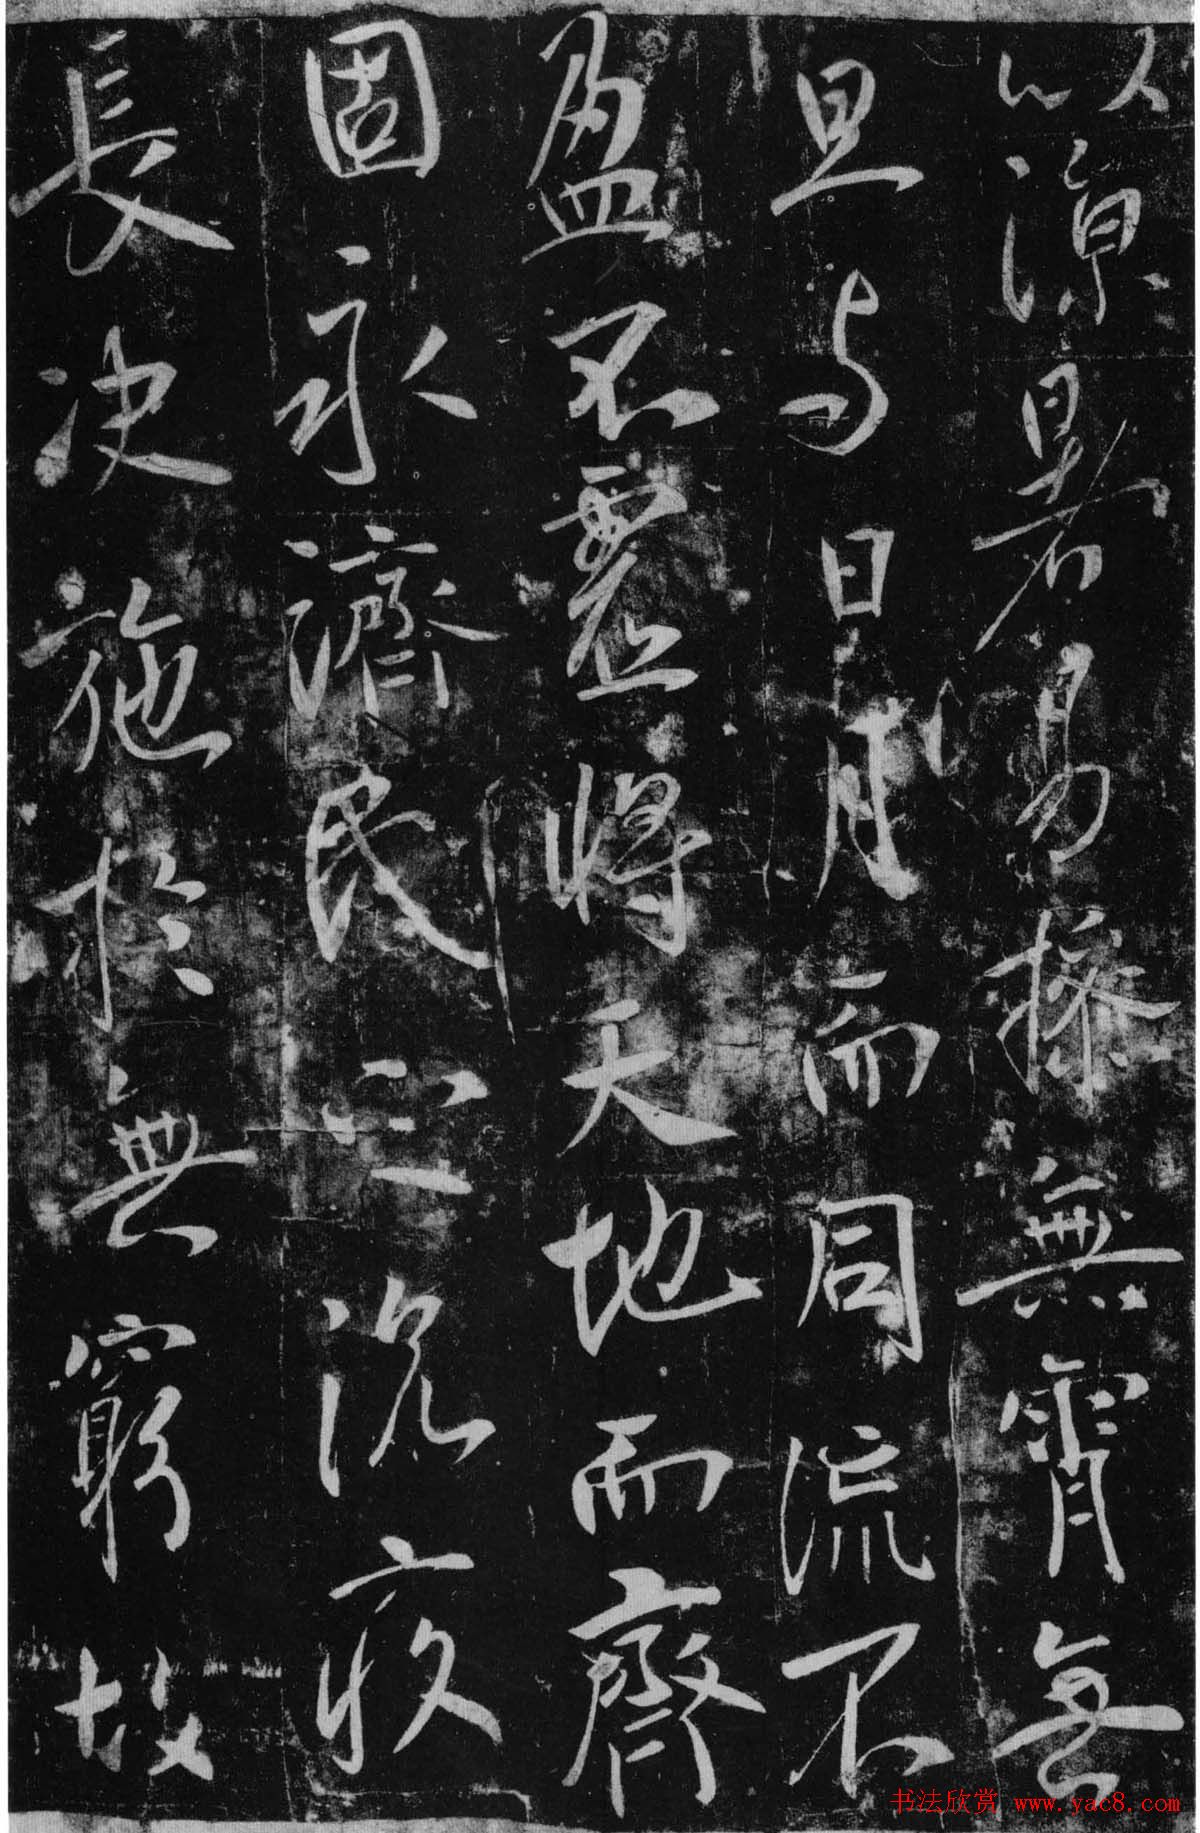 以涼暑易操無宵無
旦与日月而同流不
盈不虛將天地而齊
固永濟民之沉疫
長決施於無窮故
书法欣赏 www.yac8.com